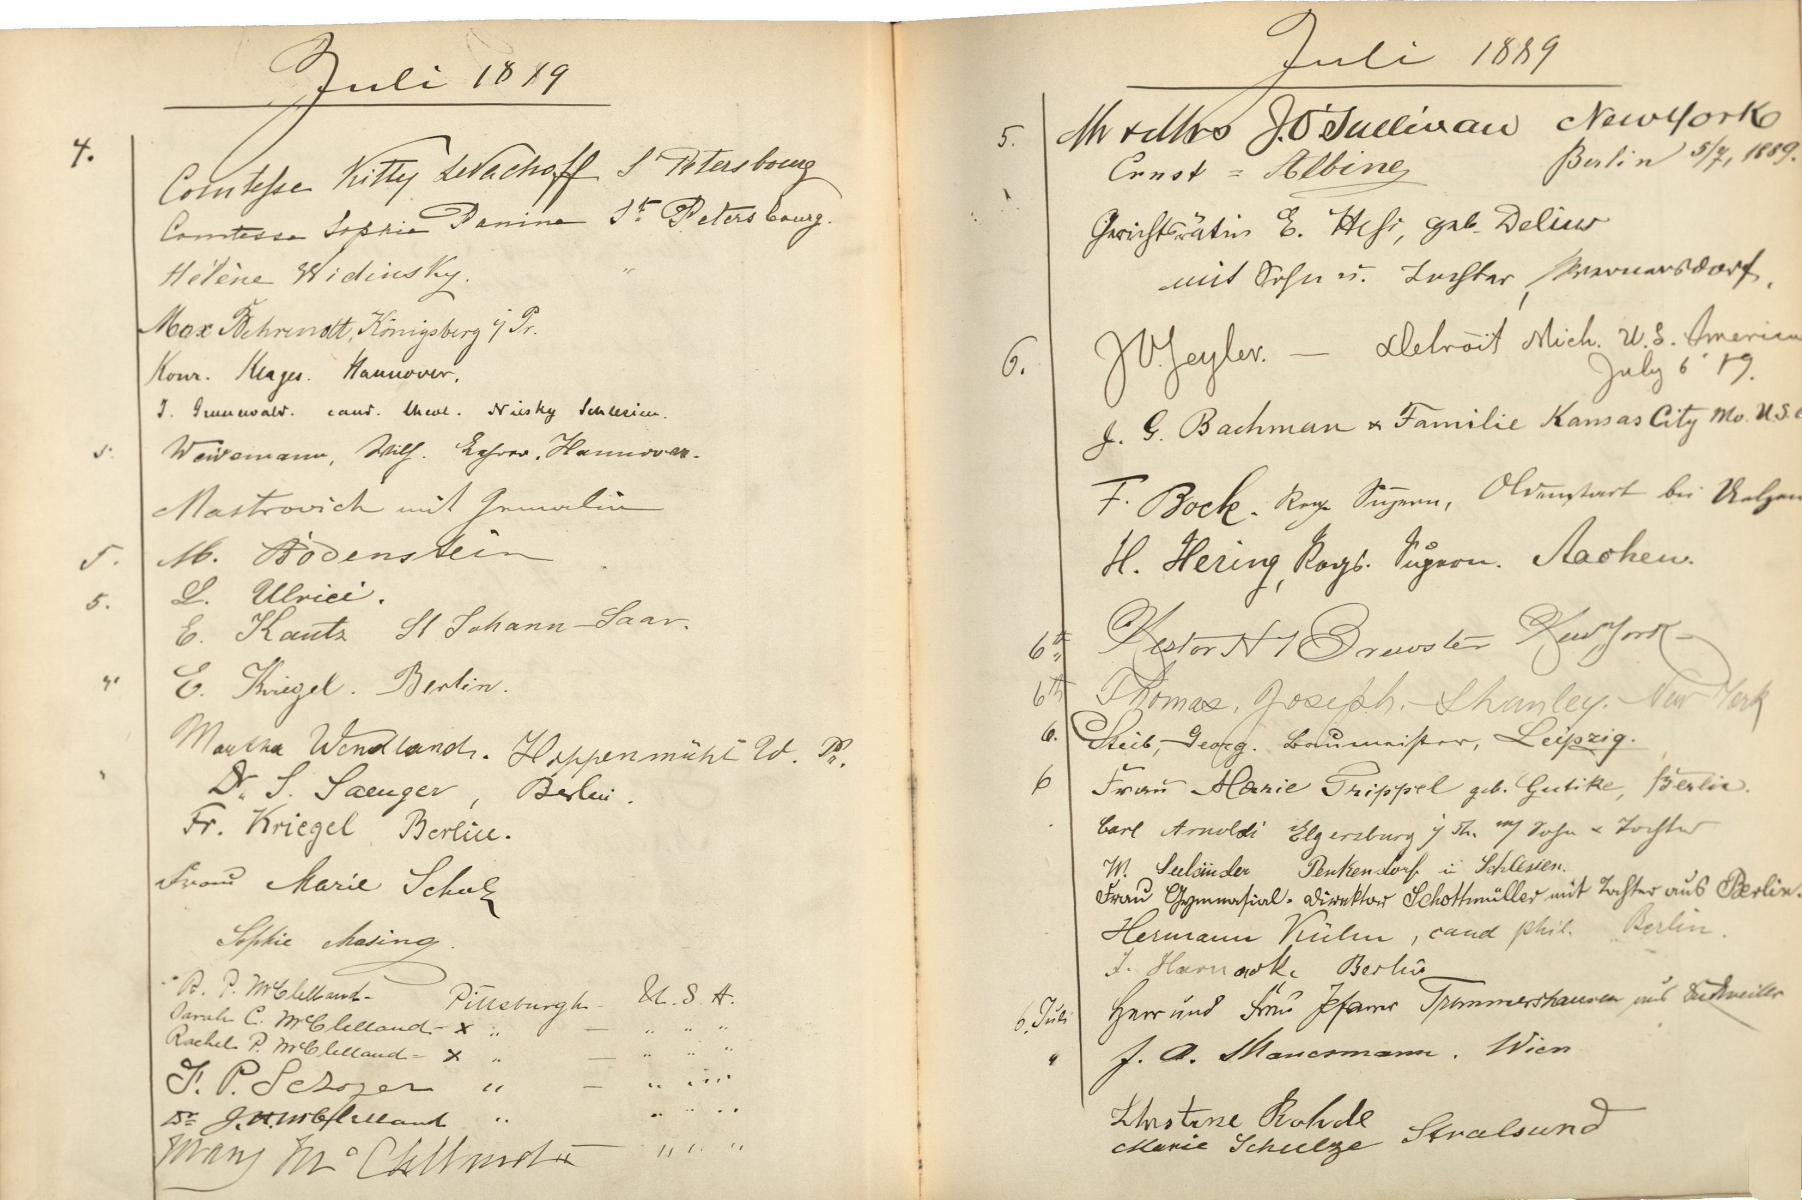 Juli 1889
4.
Comtesse Kitty St Petersbourg
Comtesse Sophie Panine St. Petersbourg.
Hélène Widinsky. "
Max Behrendt, Königsberg i/ Pr.
Konr. Klages. Hannover.
J. Grunewald. cand. theol. Niesky Schlesien.
5. Weidemann, Wilh. Hannover.
Mastrovich mit Gemalin
5. M. Bodenstein
5. L. Ulrici.
E. Kautz St Johann-Saar.
" E. Kriegel. Berlin.
Martha Wendland. Hoppenmühl W. Pr.
" Dr. S. Saenger, Berlin.
Fr. Kriegel Berlin.
Frau Marie Scholz
Sophie Masing.
R. P. McClelland - Pittsburgh - U. S. A.
Sarah C. McClelland - x " - " " "
Rachel P. McClelland - x " - " " "
F. P. " - " " "
Dr J. H. McClelland " " " "
Mary McClelland " " "
Juli 1889
5. Mr & Mrs J. O'Sullivan New York
Ernst = Albing Berlin 5/7, 1889.
Gerichtsrätin E. geb. Delius
mit Sohn u. Tochter, Wernersdorf.
6. Detroit Mich. U.S. America
July 6 89.
J. G. Bachman & Familie Kansas City Mo. U.S.
F. Bock. Oldenstadt bei Uelzen
H. Hering, Aachen.
6th Nestor Brewster New York
6th Thomas, Joseph. Shanley. New York
6. Steib, Georg. Baumeister, Leipzig.
6 Frau Marie Trippel geb. Gutike, Berlin.
Carl Arnoldi Elgersburg i/ Th. m/ Sohn & Tochter
W. Seeländer Penkendorf in Schlesien.
Frau Gymnasial-Direktor Schottmüller mit Tochter aus Berlin.
Hermann Kühn, cand phil. Berlin.
J. Harnack. Berlin
6. Juli Herr und Frau Pfarrer Trommershausen aus
" J. A. Wien
Christine Rohde
Marie Schulze Stralsund